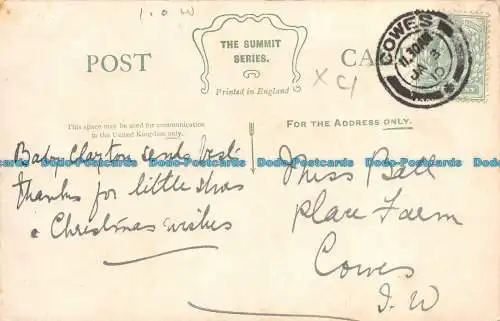 1.0.W
POST
THE SUMMIT
SERIES.
Printed in England
CA
X 4
COWES
11.30AM
JA 3
10
This space may be used for communication
in the United Kingdom only.
FOR THE ADDRESS ONLY.
Baby Claxton sends best
thanks for little shoes
& Christmas wishes
Miss Ball
Place Farm
Cowes
I.W
Dodo-Postcards Dodo-Postcards Dodo-Postcards Dodo-Postcards